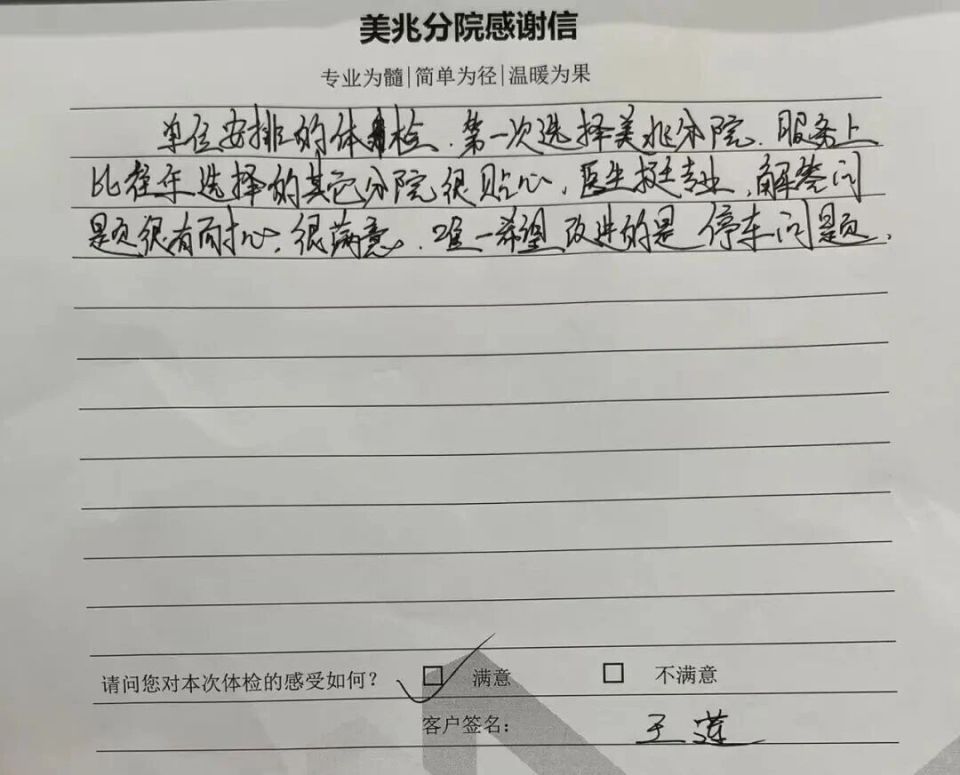 美兆分院感谢信
专业为髓|简单为径|温暖为果
单位安排的体检.第一次选择美兆分院.服务上
比往年选择的其它分院很贴心.医生挺专业.解答问
题很有耐心.很满意.唯一希望改进的是停车问题.
请问您对本次体检的感受如何? 满意 不满意
客户签名: 王莲